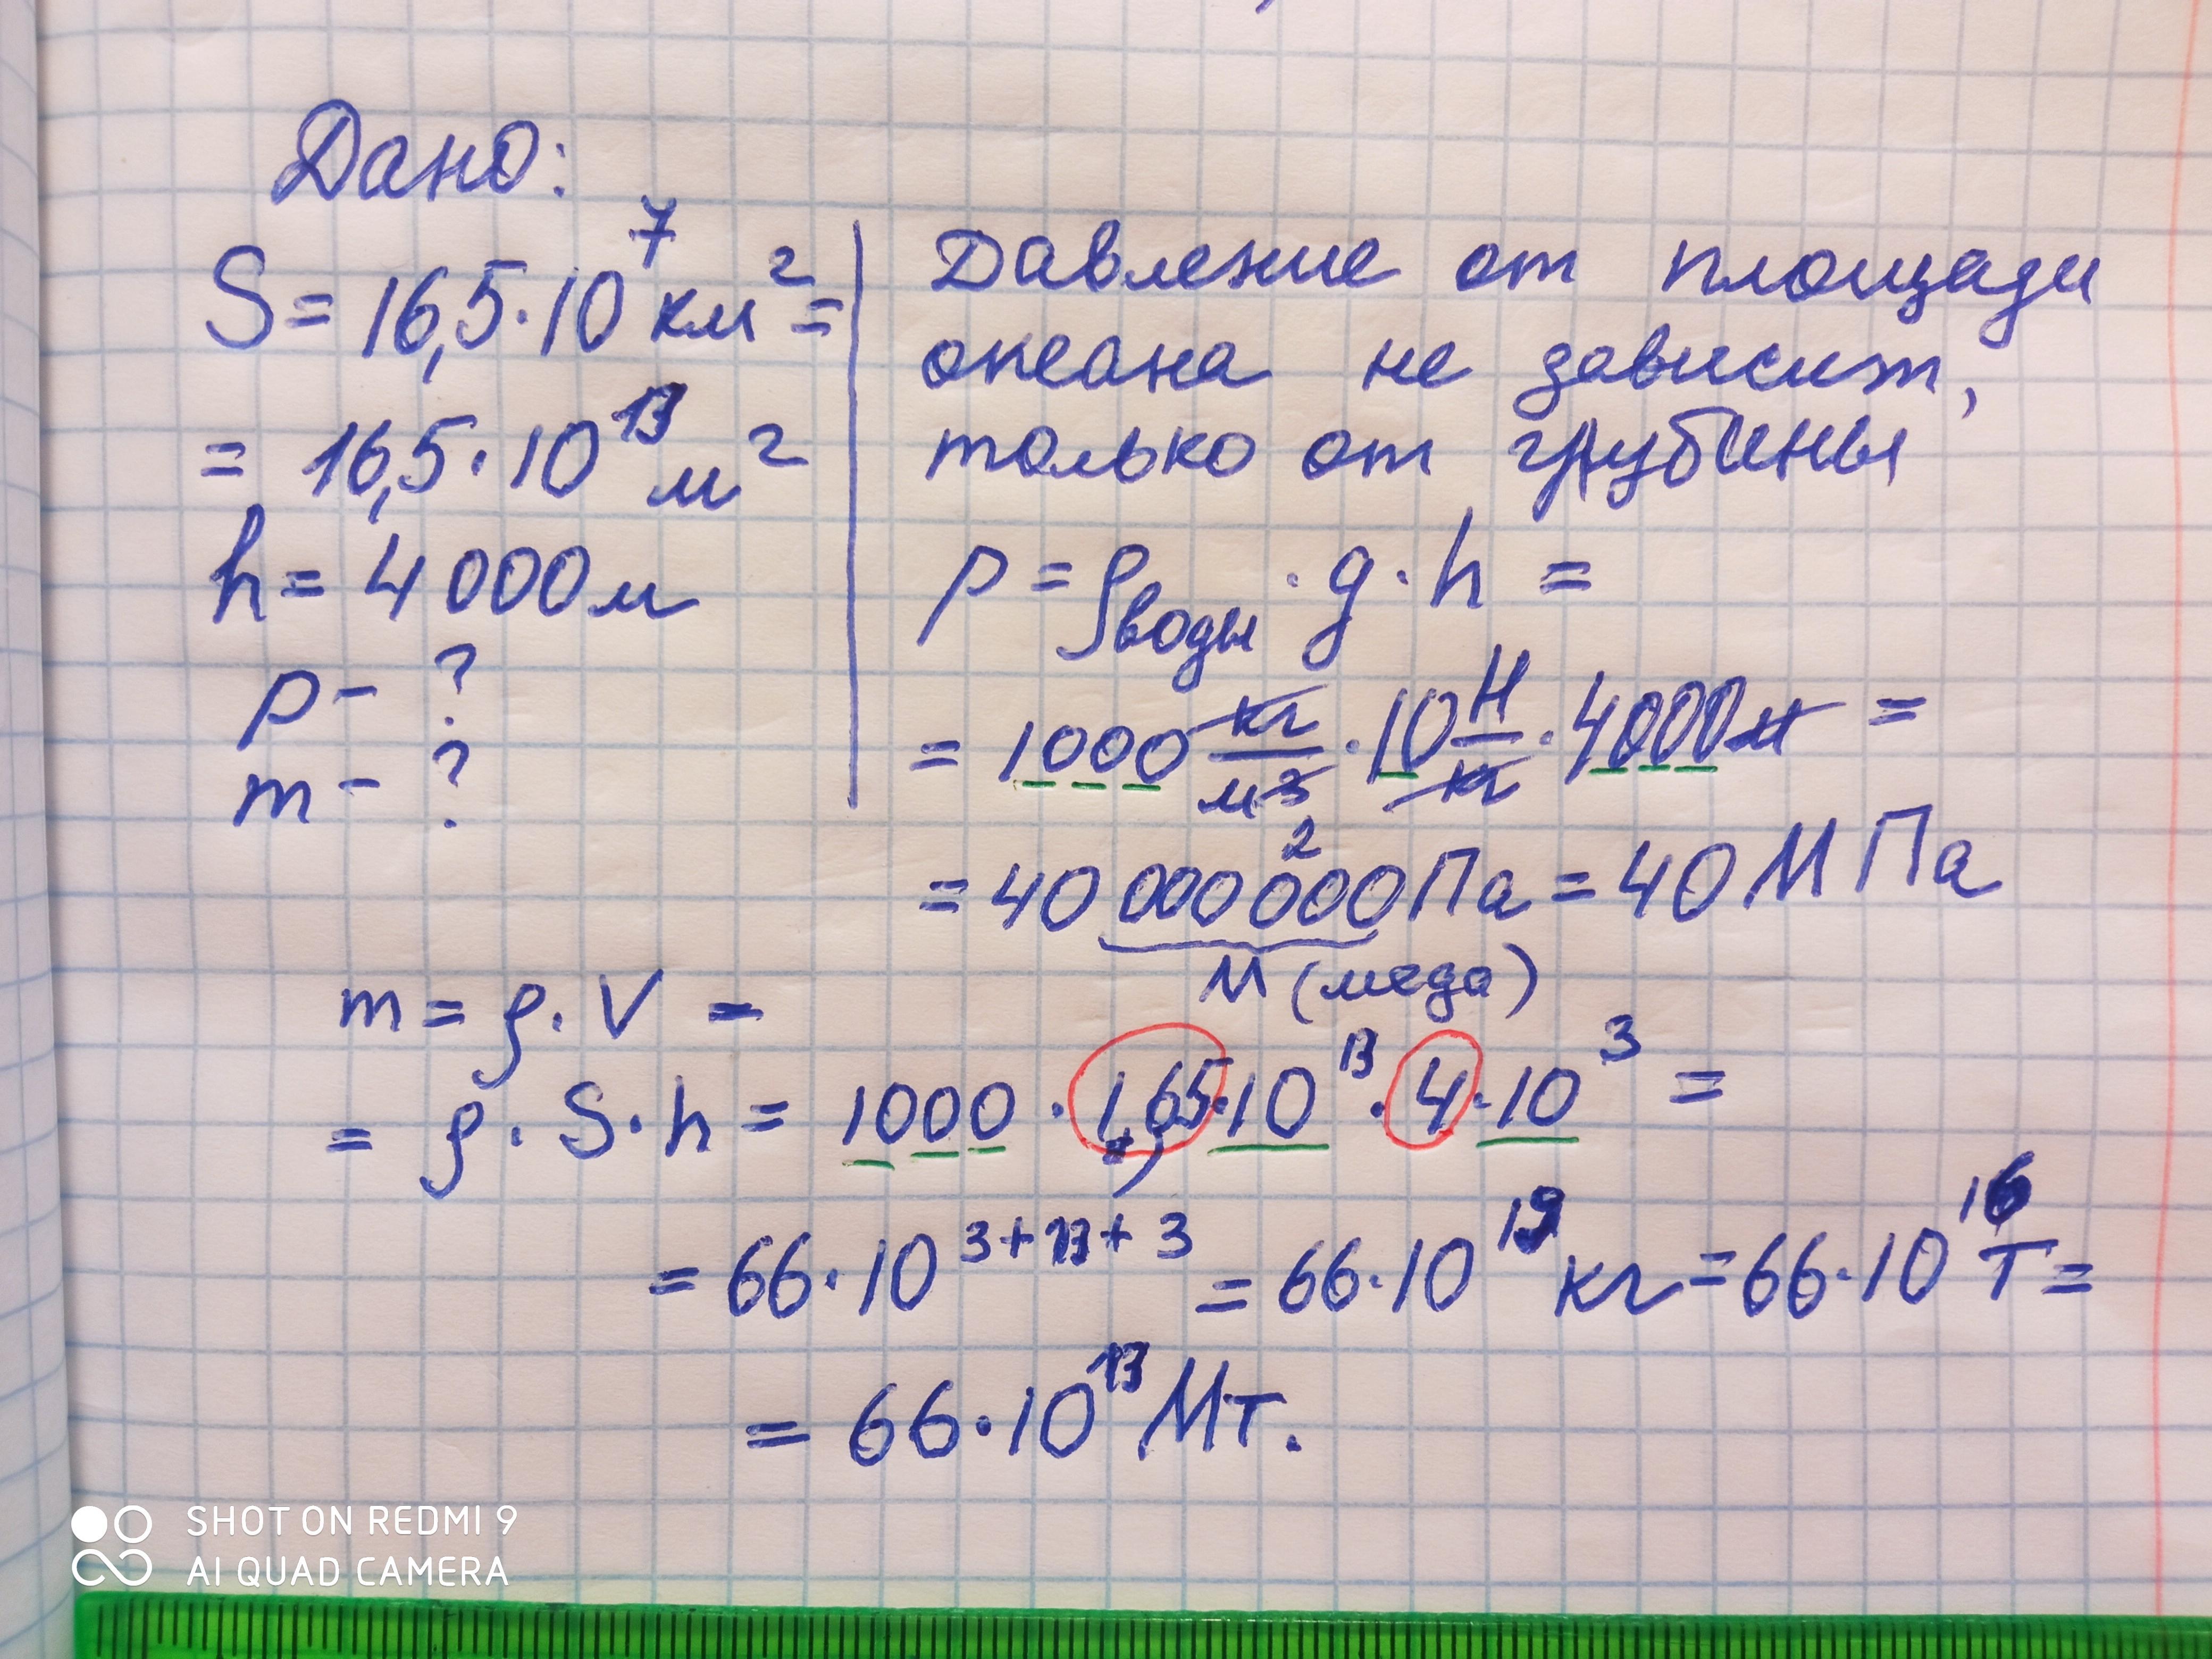 Дано:
S = 16,5·10⁷ км² =
= 16,5·10¹³ м²
h = 4000м
p - ?
m - ?
Давление от площади
океана не зависит,
только от глубины
p = ρводы · g · h =
= 1000 кг/м³ · 10 Н/кг · 4000м =
2
= 40 000 000 Па = 40 М Па
М (мега)
m = ρ · V =
= ρ · S · h = 1000 · 1,65·10¹³ · 4·10³ =
= 66·10³⁺¹³⁺³ = 66·10¹⁹ кг = 66·10¹⁶ Т =
= 66·10¹³ Мт.
SHOT ON REDMI 9
AI QUAD CAMERA